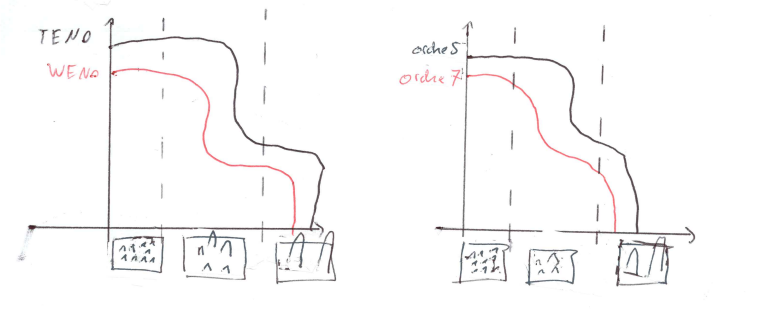 TENO
WENO
ordre 5
ordre 7